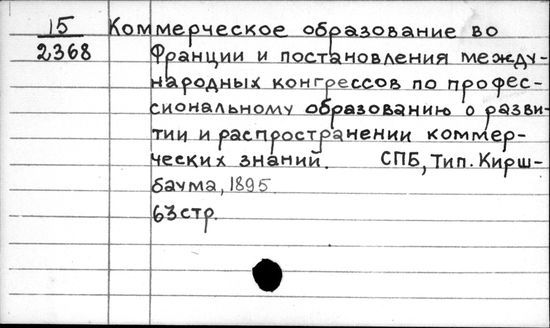 15 Коммерческое образование во
2368 Франции и постановления между-
народных конгрессов по профес-
сиональному образованию о разви-
тии и распространении коммер-
ческих знаний. СПБ, Тип. Кирш-
баума, 1895
63 стр.